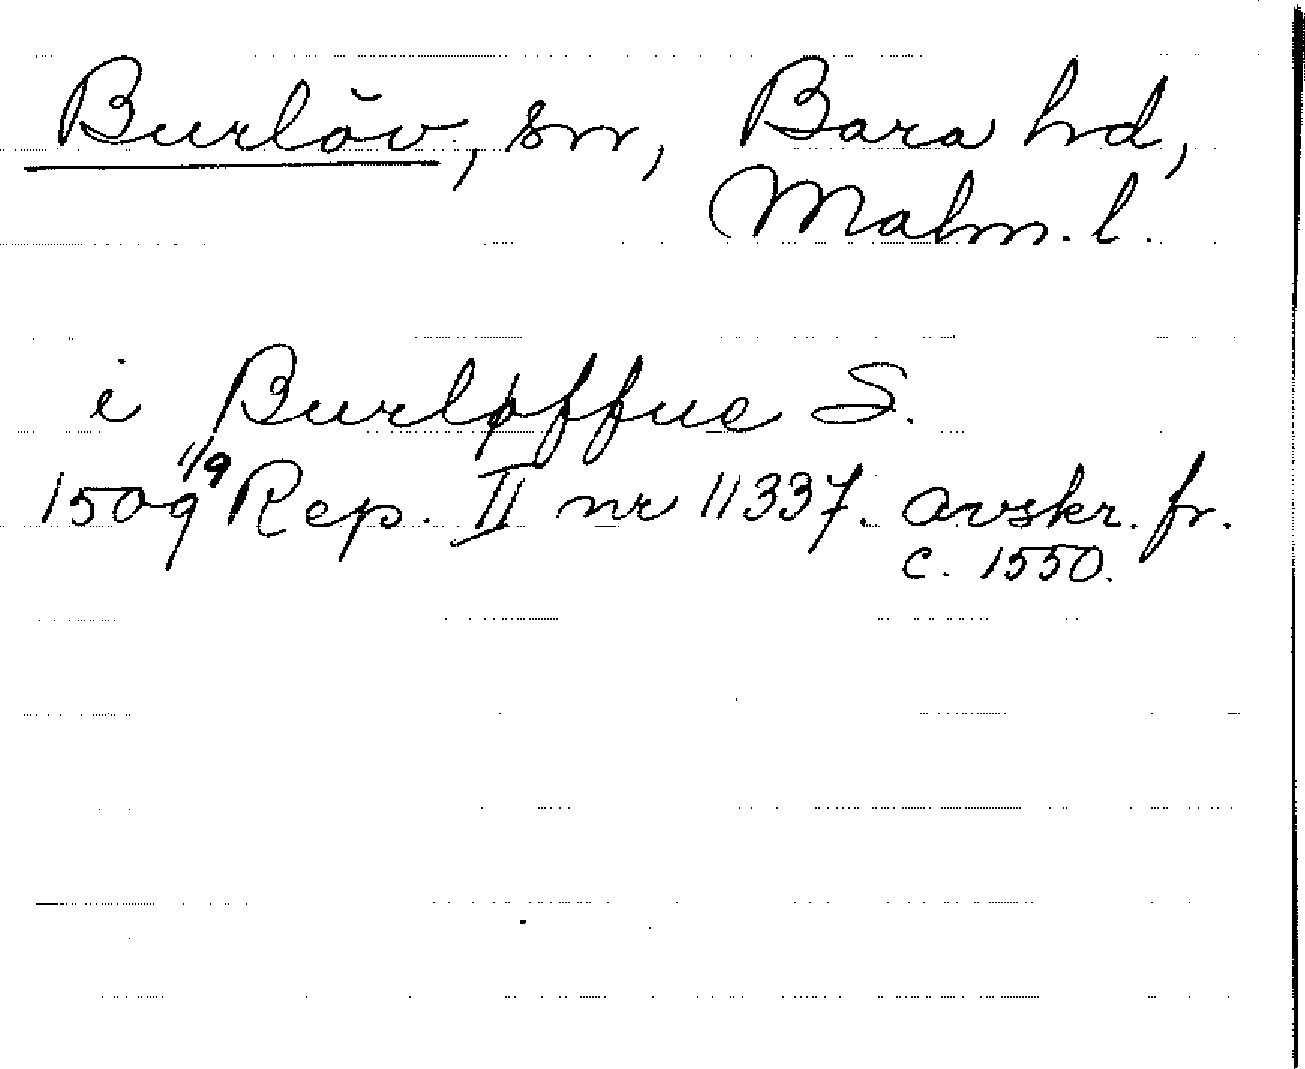 Burlöv, sn, Bara hd,
Malm. l.
i Burløffue S.
1509 1/9 Rep. II nr 11337. avskr. fr.
c. 1550.